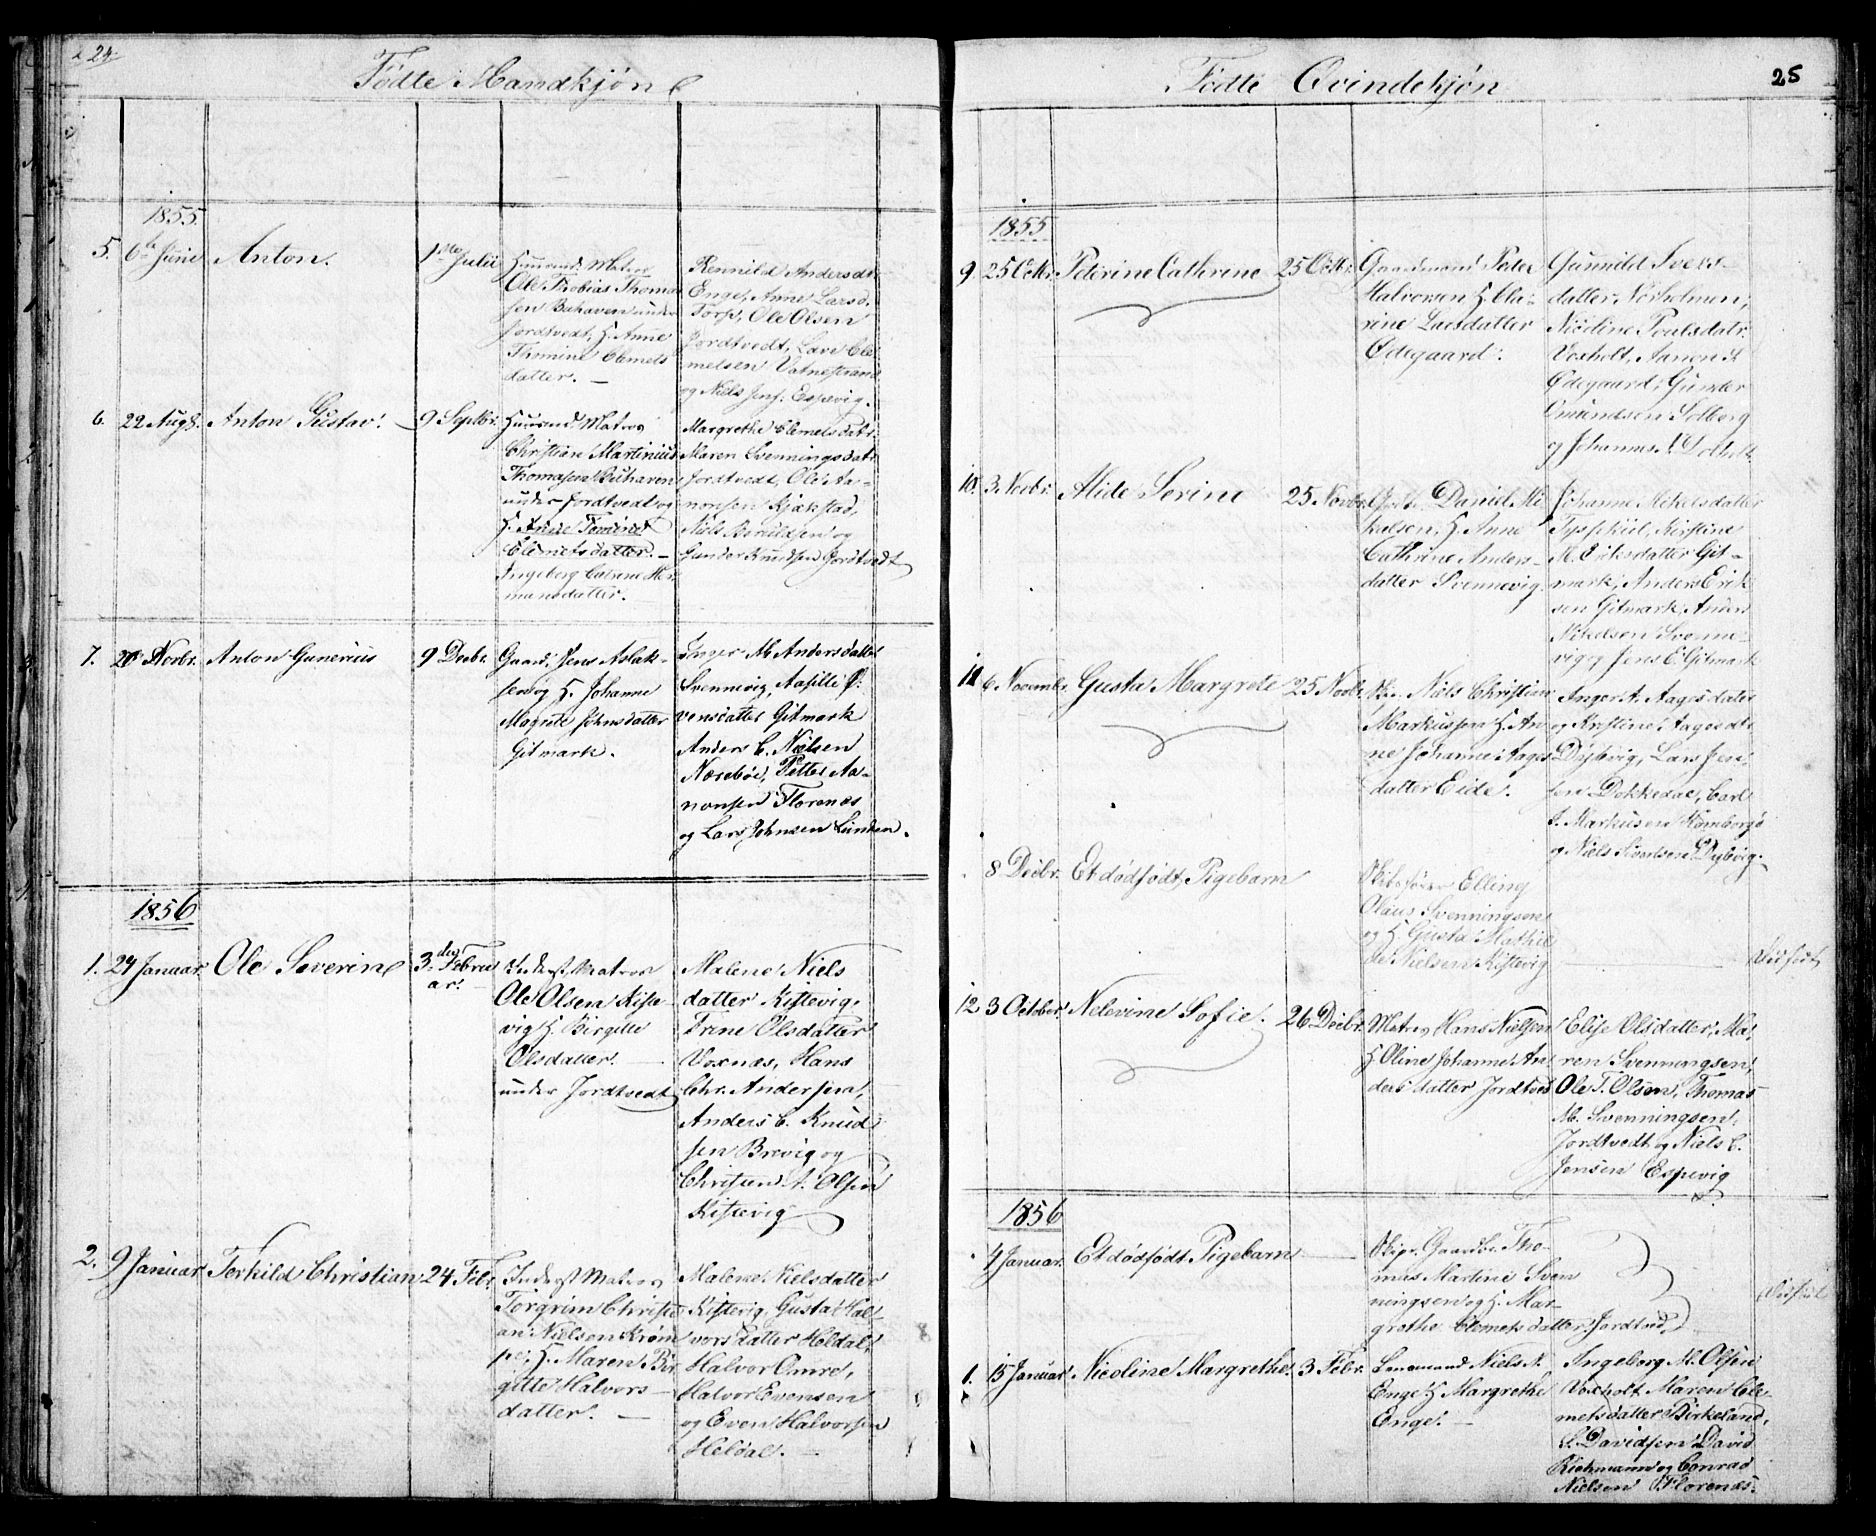 24
Fødte Mandkjøn
1855
5. 6te Junie Anton. 1ste Julii Huusmd. Matros
Ole Thobias Thoma
sen Buhaven under
Jordtvedt, H. Anne
Thomine Clemets
datter. —
Rennild Andersdtr
Enge, Anne Larsd.
Torp, Ole Olsen
Jordtvedt, Lars Cle
metsen Vatnestrand
og Niels Jens: Espevig.
6. 22 Augs. Anton Gustav. 9 Septbr. Huusmd Matros
Christian Martinius
Thomasen Buhaven
under Jordtvedt og
H. Anne Tomine
Clemetsdatter. —
Ingeborg Catrine Her
mansdatter.
Margrethe Clemetsdatr.
Maren Svenningsdatr
Jordtvedt, Ole Aa-
nonsen Kjækstad,
Niels Boruldsen og
Gunder Knudsen Jordtvedt
7. 20 Novbr. Anton Gunerius 9 Decbr. Gaard. Jens Aslak-
sen og H. Johanne
Magrete Johnsdatter
Gitmark.
Inger M. Andersdatter
Svennevig, Aasille
vensdatter Gitmark
Anders C. Nielsen
Noreböe, Petter Aa-
nonsen Florenæs
og Lars Johnsen Lunden.
1856
1. 24 Januar Ole Severin 3die Febru
ar. Inderst, Matros
Ole Olsen Kiste-
vig H. Birgitte
Olsdatter.
under Jordtvedt
Malene Niels
datter Kistevig,
Trine Olsdatter
Voxnæs, Hans
Chr. Andersen,
Anders C. Knud
sen Brevig og
Christen A. Olsen
Kistevig
2. 9 Januar Terkild Christian 24 Febr. Inderst Matros
Torgrim Christi
an Nielsen Krøm
pe, H. Maren Bir
gitte Halvors-
datter. —
Malene Nielsdatter
Kistevig, Gusta Hal
vorsdatter Heldal,
Halvor Omre,
Halvor Evensen
og Even Halvorsen
Heldal. —
25
Fødte Qvindekjøn
1855
9. 25 Octbr. Peterine Cathrine 25 Octbr. Gaardmand Peder
Halvorsen H. Cla-
rine Larsdatter
Ødegaard.
Gunnild Svers-
datter Norholmen,
Nicoline Poulsdatr.
Voxholt, Aanon
Ødegaard, Gunder
Omundsen Solberg
og Johannes N. Dolholt
10. 3 Novbr. Alide Serine 25 Novbr. Daniel Mi
kelsen, H. Anne
Cathrine Anders-
datter Svennevig.
Johanne Mikelsdatter
Kirstine
M. Eriksdatter Git-
mark, Anders Erik
sen Gitmark, Anders
Mikelsen Svenne-
vig og Jens E. Gitmark
11 6 Novembr. Gusta Margrete 25 Novbr. Skp. Niels Christian
Markussen H. An
ne Johanne Aages
datter Eide.
Anger A. Aagesdater
og Kristine Aagesdtr
Dybvig, Lars Jen
sen Dokkedal, Carl
J. Markusen Homborgø
og Niels Sivertsen Dybvig.
8 Decbr. Et dødfødt, Pigebarn Skibsfører Elling
Olaus Svenningsen
og H. Gusta Mathil
de Nielsen Kistevig
Dødfødt
12 3 October. Nelevine Sofie. 26 Decbr. Matros Hans Nielsen
H Oline Johanne An
dersdatter Jordtved
Elise Olsdatter, Ma-
ren Svenningsen,
Ole T. Olsen, Thomas
M. Svenningsen,
Jordtvedt og Niels C.
Jensen Espevig
1856
4 Januar. Et dødfødt Pigebarn Skipr. Gaardbr. Tho-
mas Martine Sven
ningsen og H. Mar-
grethe Clemetsdatter Jordtved,
Dødfødt
1. 15 Januar Nicoline Margrethe. 3 Febr. Lensmand Niels N.
Enge H Margrethe
Enge. —
Ingeborg M. Olsen
Voxholt, Maren Cle-
metsdatter Birkeland,
L. Davidsen David
Kichmann og Conrad
Nielsen Florenæs.